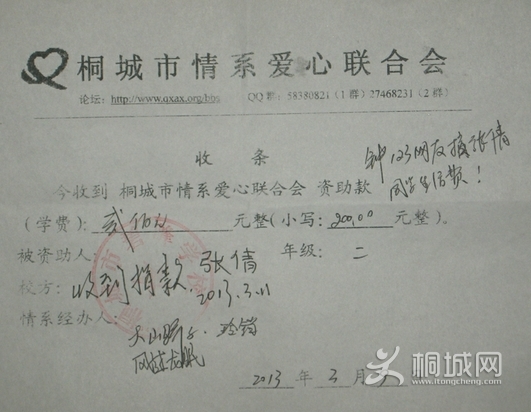 桐城市情系爱心联合会
论坛：http://www.qxax.org/bbs QQ群：58380821（1群）27468231（2群）
收 条
钟123网友捐张倩
同学生活费！
今收到 桐城市情系爱心联合会 资助款
（学费）：贰佰元 元整（小写：200.00 元整）。
被资助人： 张倩 年级：二
校方：收到捐款 2013.3.11
情系经办人：
大山
2013 年 3 月 日
桐城网
www.itongcheng.com